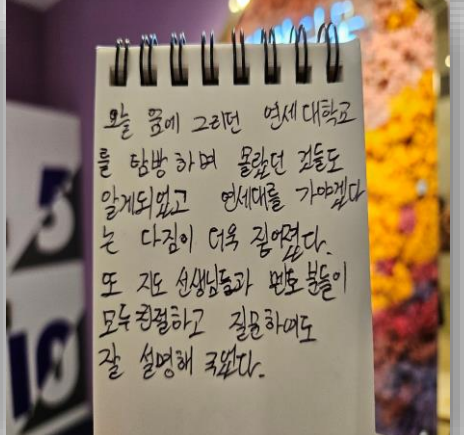 오늘 꿈에 그리던 연세대학교
를 탐방하며 몰랐던 것들도
알게되었고 연세대를 가야겠다
는 다짐이 더욱 짙어졌다.
또 지도 선생님들과 멘토분들이
모두 친절하고 질문하여도
잘 설명해 주셨다.